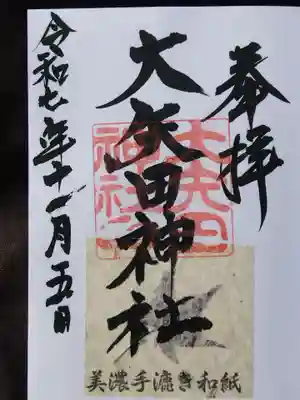 奉拝
大矢田神社
令和七年十一月五日
大矢田
神社
美濃手漉き和紙